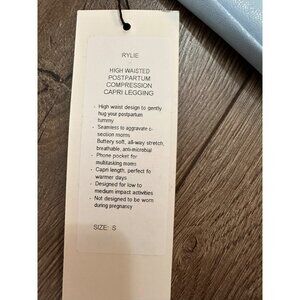 RYLIE
HIGH WAISTED
POSTPARTUM
COMPRESSION
CAPRI LEGGING
- High waist design to gently
hug your postpartum
tummy
- Seamless to aggravate c-
section moms
Buttery soft, all-way stretch,
breathable, anti-microbial
- Phone pocket for
multitasking moms
- Capri length, perfect fo
warmer days
- Designed for low to
medium impact activities
- Not designed to be worn
during pregnancy
SIZE: S